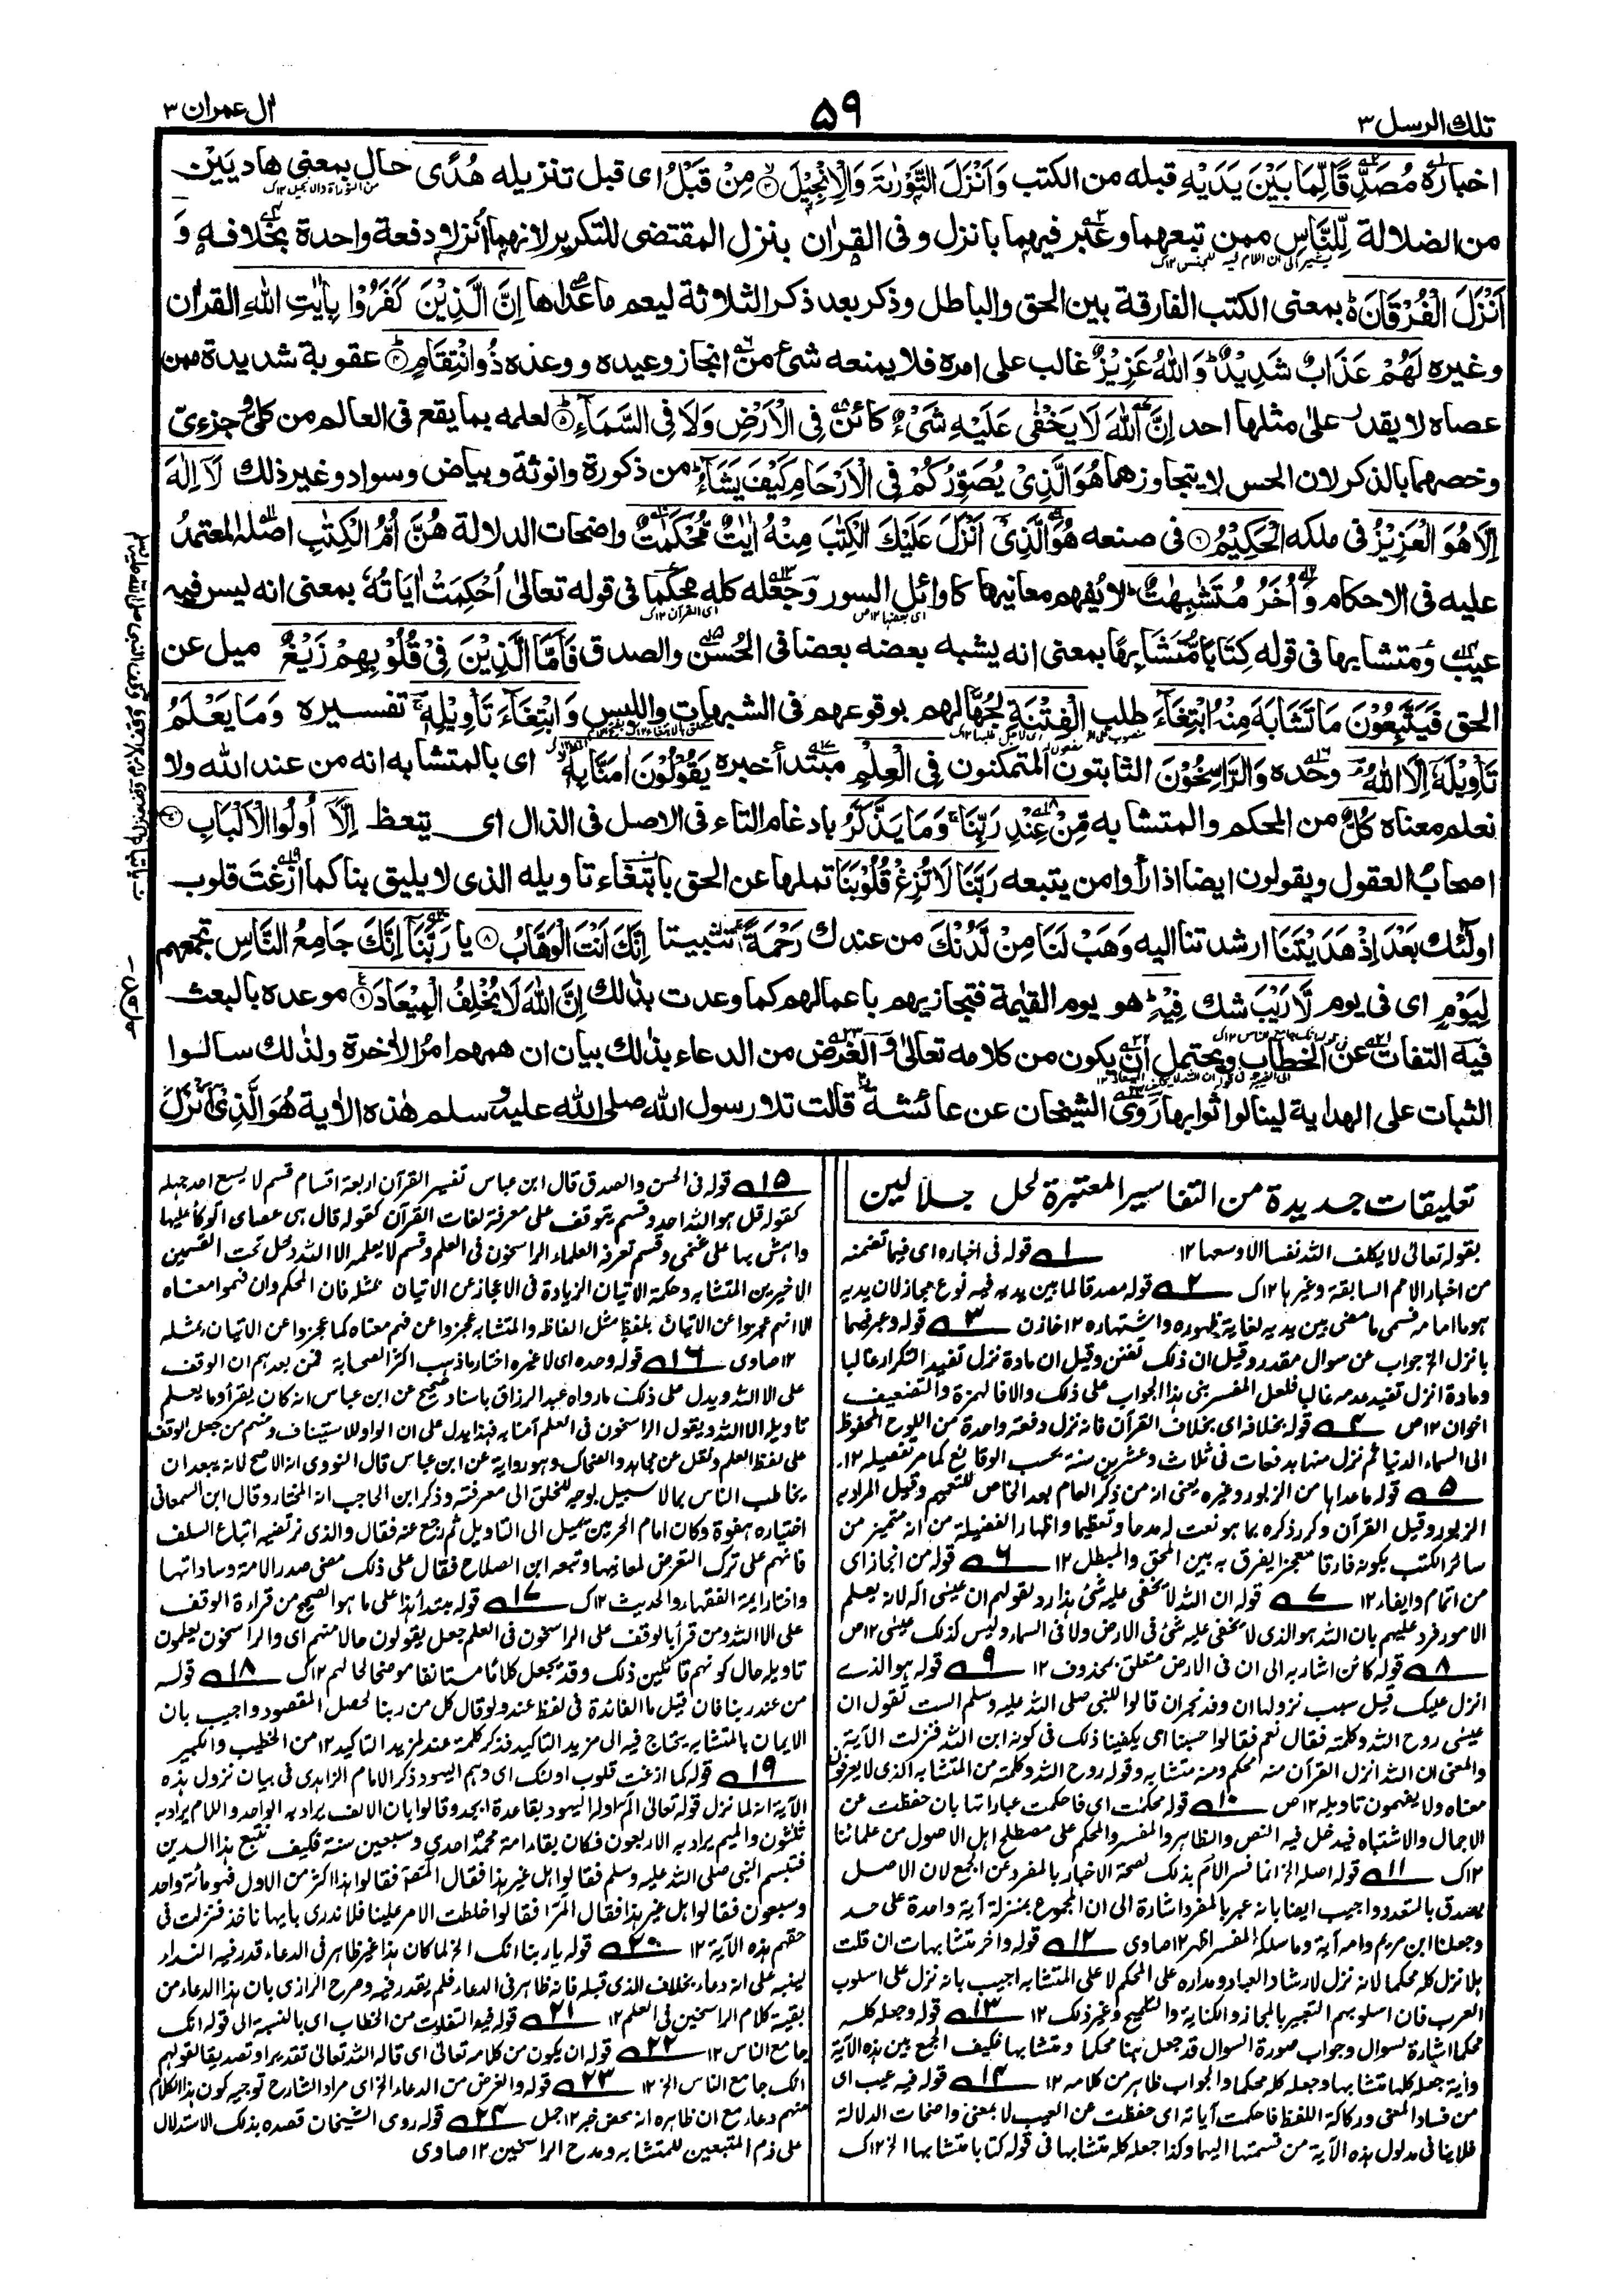 تلك الرسل ٣
٥٩
اٰل عمران ٣
اخباره مُصَدِّقًا لِّمَا بَيْنَ يَدَيْهِ قبله من الكتب وَاَنْزَلَ التَّوْرٰىةَ وَالْاِنْجِيْلَ ۝٣ مِنْ قَبْلُ اى قبل تنزيله هُدًى حال بمعنى هاديين
من الضلالة لِّلنَّاسِ ممن تبعهما وعبّر فيهما بانزل وفى القراٰن بنزل المقتضى للتكرير لانهما أنزلا دفعة واحدة بخلافه وَ
اَنْزَلَ الْفُرْقَانَ بمعنى الكتب الفارقة بين الحق والباطل وذكر بعد ذكر الثلاثة ليعم ما عداها اِنَّ الَّذِيْنَ كَفَرُوْا بِاٰيٰتِ اللهِ القراٰن
وغيره لَهُمْ عَذَابٌ شَدِيْدٌ وَاللهُ عَزِيْزٌ غالب على امره فلا يمنعه شئ من انجاز وعيده ووعده ذُو انْتِقَامٍ ۝٤ عقوبة شديدة ممن
عصاه لا يقدر على مثلها احد اِنَّ اللهَ لَا يَخْفٰى عَلَيْهِ شَىْءٌ كائن فِى الْاَرْضِ وَلَا فِى السَّمَآءِ ۝٥ لعلمه بما يقع فى العالم من كلى وجزئى
وخصهما بالذكر لان الحس لا يتجاوزهما هُوَ الَّذِىْ يُصَوِّرُكُمْ فِى الْاَرْحَامِ كَيْفَ يَشَآءُ من ذكورة وانوثة وبياض وسواد وغير ذلك لَآ اِلٰهَ
اِلَّا هُوَ الْعَزِيْزُ فى ملكه الْحَكِيْمُ ۝٦ فى صنعه هُوَ الَّذِىْ اَنْزَلَ عَلَيْكَ الْكِتٰبَ مِنْهُ اٰيٰتٌ مُّحْكَمٰتٌ واضحات الدلالة هُنَّ اُمُّ الْكِتٰبِ اصله المعتمد
عليه فى الاحكام وَاُخَرُ مُتَشٰبِهٰتٌ لا يُفهم معانيها كاوائل السور وجعله كله محكما فى قوله تعالىٰ اُحْكِمَتْ اٰيَاتُهٗ بمعنى انه ليس فيه
عيب ومتشابها فى قوله كِتَابًا مُّتَشَابِهًا بمعنى انه يشبه بعضه بعضا فى الحُسن والصدق فَاَمَّا الَّذِيْنَ فِىْ قُلُوْبِهِمْ زَيْغٌ ميل عن
الحق فَيَتَّبِعُوْنَ مَا تَشَابَهَ مِنْهُ ابْتِغَآءَ طلب الْفِتْنَةِ لجُهّالهم بوقوعهم فى الشبهات واللبس وَابْتِغَآءَ تَأْوِيْلِهٖ تفسيره وَمَا يَعْلَمُ
تَأْوِيْلَهٗ اِلَّا اللهُ وحده وَالرَّاسِخُوْنَ الثابتون المتمكنون فِى الْعِلْمِ مبتدأ خبره يَقُوْلُوْنَ اٰمَنَّا بِهٖ اى بالمتشابه انه من عند الله ولا
نعلم معناه كُلٌّ من المحكم والمتشابه مِّنْ عِنْدِ رَبِّنَا وَمَا يَذَّكَّرُ بادغام التاء فى الاصل فى الذال اى يتعظ اِلَّآ اُولُوا الْاَلْبَابِ ۝٧
اصحاب العقول ويقولون ايضا اذا رأوا من يتبعه رَبَّنَا لَا تُزِغْ قُلُوْبَنَا تملها عن الحق بابتغاء تاويله الذى لا يليق بنا كما ازغت قلوب
اولٰئك بَعْدَ اِذْ هَدَيْتَنَا ارشدتنا اليه وَهَبْ لَنَا مِنْ لَّدُنْكَ من عندك رَحْمَةً تثبيتا اِنَّكَ اَنْتَ الْوَهَّابُ ۝٨ يا رَبَّنَآ اِنَّكَ جَامِعُ النَّاسِ تجمعهم
لِيَوْمٍ اى فى يوم لَّا رَيْبَ شك فِيْهِ هو يوم القيٰمة فتجازيهم باعمالهم كما وعدت بذلك اِنَّ اللهَ لَا يُخْلِفُ الْمِيْعَادَ ۝٩ موعده بالبعث
فيه التفات عن الخطاب ويحتمل أن يكون من كلامه تعالىٰ والغرض من الدعاء بذلك بيان ان همهم امر الاٰخرة ولذلك سالوا
الثبات على الهداية لينالوا ثوابها روى الشيخان عن عائشة قالت تلا رسول الله صلى الله عليه وسلم هٰذه الاٰية هُوَ الَّذِىْ اَنْزَلَ
تعليقات جديدة من التفاسير المعتبرة لحل جلالين
بقوله تعالى لا يكلف الله نفسا الا وسعها ١٢ ١ قوله فى اخباره اى فيما تضمنه
من اخبار الامم السابقة وغيرها ١٢ك ٢ قوله مصدقا لما بين يديه فيه نوع مجاز لان يديه
هو ما امامه فسمى ما مضى بين يديه لغاية ظهوره واشتهاره ١٢ خازن ٣ قوله وعبر فيهما
بانزل الخ جواب عن سوال مقدر وقيل ان ذلك تفنن وقيل ان مادة نزل تفيد التكرار غالبا
ومادة انزل تفيد عدمه غالبا فلعل المفسر بنى هذا الجواب على ذلك والا فالهمزة والتضعيف
اخوان ١٢ص ٤ قوله بخلافه اى بخلاف القرآن فانه نزل دفعة واحدة من اللوح المحفوظ
الى السماء الدنيا ثم نزل منها بدفعات فى ثلاث وعشرين سنة بحسب الوقائع كما مر تفصيله ١٢
٥ قوله ما عداها من الزبور وغيره يعنى انه من ذكر العام بعد الخاص للتعميم وقيل المراد به
الزبور وقيل القرآن وكرر ذكره بما هو نعت له مدحا وتعظيما واظهارا لفضيلة من انه متميز من
سائر الكتب بكونه فارقا معجزا يفرق به بين المحق والمبطل ١٢ ٦ قوله من انجاز اى
من اتمام وايفاء ١٢ ٧ قوله ان الله لا يخفى عليه شئ هذا رد لقولهم ان عيسى اله لانه يعلم
الامور فرد عليهم بان الله هو الذى لا يخفى عليه شئ فى الارض ولا فى السماء وليس كذلك عيسى ١٢ص
٨ قوله كائن اشار به الى ان فى الارض متعلق بمحذوف ١٢ ٩ قوله هو الذى
انزل عليك قيل سبب نزولها ان وفد نجران قالوا للنبى صلى الله عليه وسلم الست تقول ان
عيسى روح الله وكلمته فقال نعم فقالوا حسبنا اى يكفينا ذلك فى كونه ابن الله فنزلت الآية
والمعنى ان الله انزل القرآن منه محكم ومنه متشابه وقوله روح الله وكلمته من المتشابه الذى لا يعرفون
معناه ولا يفهمون تاويله ١٢ص ١٠ قوله محكمت اى فاحكمت عباراتها بان حفظت عن
الاجمال والاشتباه فيدخل فيه النص والظاهر والمفسر والمحكم على مصطلح اهل الاصول من علمائنا
١٢ك ١١ قوله اصله الخ انما فسر الام بذلك لصحة الاخبار بالمفرد عن الجمع لان الاصل
يصدق بالمتعدد واجيب ايضا بانه عبر بالمفرد اشارة الى ان المجموع بمنزلة آية واحدة على حد
وجعلنا ابن مريم وامه آية وما سلكه المفسر اظهر ١٢ صاوى ١٢ قوله واخر متشابهات ان قلت
هلا نزل كله محكما لانه نزل لارشاد العباد ومداره على المحكم لا على المتشابه اجيب بانه نزل على اسلوب
العرب فان اسلوبهم التعبير بالمجاز والكناية والتلميح وغير ذلك ١٢ ١٣ قوله وجعله كله
محكما اشارة لسوال وجواب صورة السوال قد جعل هنا محكما ومتشابها فكيف الجمع بين هذه الآية
وآية جعل كلها متشابها وجعله كله محكما والجواب ظاهر من كلامه ١٢ ١٤ قوله فيه عيب اى
من فساد المعنى وركاكة اللفظ فاحكمت آياته اى حفظت عن العيب لا بمعنى واضحات الدلالة
فلا ينافى مدلول هذه الآية من قسمتها اليهما وكذا جعله كله متشابها فى قوله كتابا متشابها الخ ١٢ك
١٥ قوله فى الحسن والصدق قال ابن عباس تفسير القرآن اربعة اقسام قسم لا يسع احد جهله
كقوله قل هو الله احد وقسم يتوقف على معرفة لغات القرآن كقوله قال هى عصاى اتوكأ عليها
واهش بها على غنمى وقسم تعرفه العلماء الراسخون فى العلم وقسم لا يعلمه الا الله ودخل تحت القسمين
الاخيرين المتشابه وحكمة الاتيان الزيادة فى الاعجاز عن الاتيان بمثله فان المحكم وان فهموا معناه
الا انهم عجزوا عن الاتيان بلفظ مثل الفاظه والمتشابه عجزوا عن فهم معناه كما عجزوا عن الاتيان بمثله
١٢ صاوى ١٦ قوله وحده اى لا غيره اختار ما ذهب اكثر الصحابة فمن بعدهم ان الوقف
على الا الله ويدل على ذلك ما رواه عبد الرزاق باسناد صحيح عن ابن عباس انه كان يقرأ وما يعلم
تاويله الا الله ويقول الراسخون فى العلم آمنا به فهذا يدل على ان الواو للاستيناف ومنهم من جعل الوقف
على لفظ العلم ونقل عن مجاهد والضحاك وهو رواية عن ابن عباس قال النووى انه الاصح لانه يبعد ان
يخاطب الناس بما لا سبيل بوجه للخلق الى معرفته وذكر ابن الحاجب انه المختار وقال ابن السمعانى
اختياره هفوة وكان امام الحرمين يميل الى التاويل ثم رجع عنه فقال والذى نرتضيه اتباع السلف
فانهم على ترك التعرض لمعانيها وتبعه ابن الصلاح فقال على ذلك مضى صدر الامة وساداتها
واختار ايمة الفقهاء والحديث ١٢ك ١٧ قوله مبتدأ هذا على ما هو الصحيح من قراءة الوقف
على الا الله ومن قرأ بالوقف على الراسخون فى العلم جعل يقولون حالا منهم اى والراسخون يعلمون
تاويله حال كونهم قائلين ذلك وقد يجعل كلاما مستانفا موضحا لحالهم ١٢ك ١٨ قوله
من عند ربنا فان قيل ما الفائدة فى لفظ عند ولو قال كل من ربنا لحصل المقصود واجيب بان
الايمان بالمتشابه يحتاج فيه الى مزيد التاكيد فذكر كلمة عند لمزيد التاكيد ١٢ من الخطيب والكبير
١٩ قوله كما ازغت قلوب اولئك اى وهم اليهود ذكر الامام الزاهدى فى بيان نزول هذه
الآية انه لما نزل قوله تعالى الم اوله اليهود بقاعدة ابجد وقالوا بان الالف يراد به الواحد واللام يراد به
ثلثون والميم يراد به الاربعون فكان بقاء امة محمد احدى وسبعين سنة فكيف نتبع هذا الدين
فتبسم النبى صلى الله عليه وسلم فقالوا هل غير هذا فقال المص فقالوا هذا اكثر من الاول فهو مائة واحد
وسبعون فقالوا هل غير هذا فقال المر فقالوا خلطت الامر علينا فلا ندرى بايها ناخذ فنزلت فى
حقهم هذه الآية ١٢ ٢٠ قوله يا ربنا انك الخ لما كان هذا غير ظاهر فى الدعاء قدر فيه النداء
لينبه على انه دعاء بخلاف الذى قبله فانه ظاهر فى الدعاء فلم يقدر فيه وصرح الرازى بان هذا الدعاء من
بقية كلام الراسخين فى العلم ١٢ ٢١ قوله فيه التفات من الخطاب اى بالنسبة الى قوله انك
جامع الناس ١٢ ٢٢ قوله ان يكون من كلامه تعالى اى قاله الله تعالى تقديرا وتصديقا لقولهم
انك جامع الناس الخ ١٢ ٢٣ قوله والغرض من الدعاء الخ اى مراد الشارح توجيه كون هذا الكلام
منهم دعاء مع ان ظاهره انه محض خبر ١٢ جمل ٢٤ قوله روى الشيخان قصده بذلك الاستدلال
على ذم المتبعين للمتشابه ومدح الراسخين ١٢ صاوى